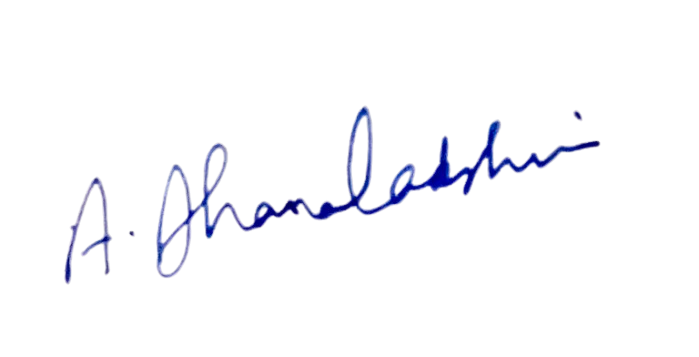 A. Dhanalakshmi